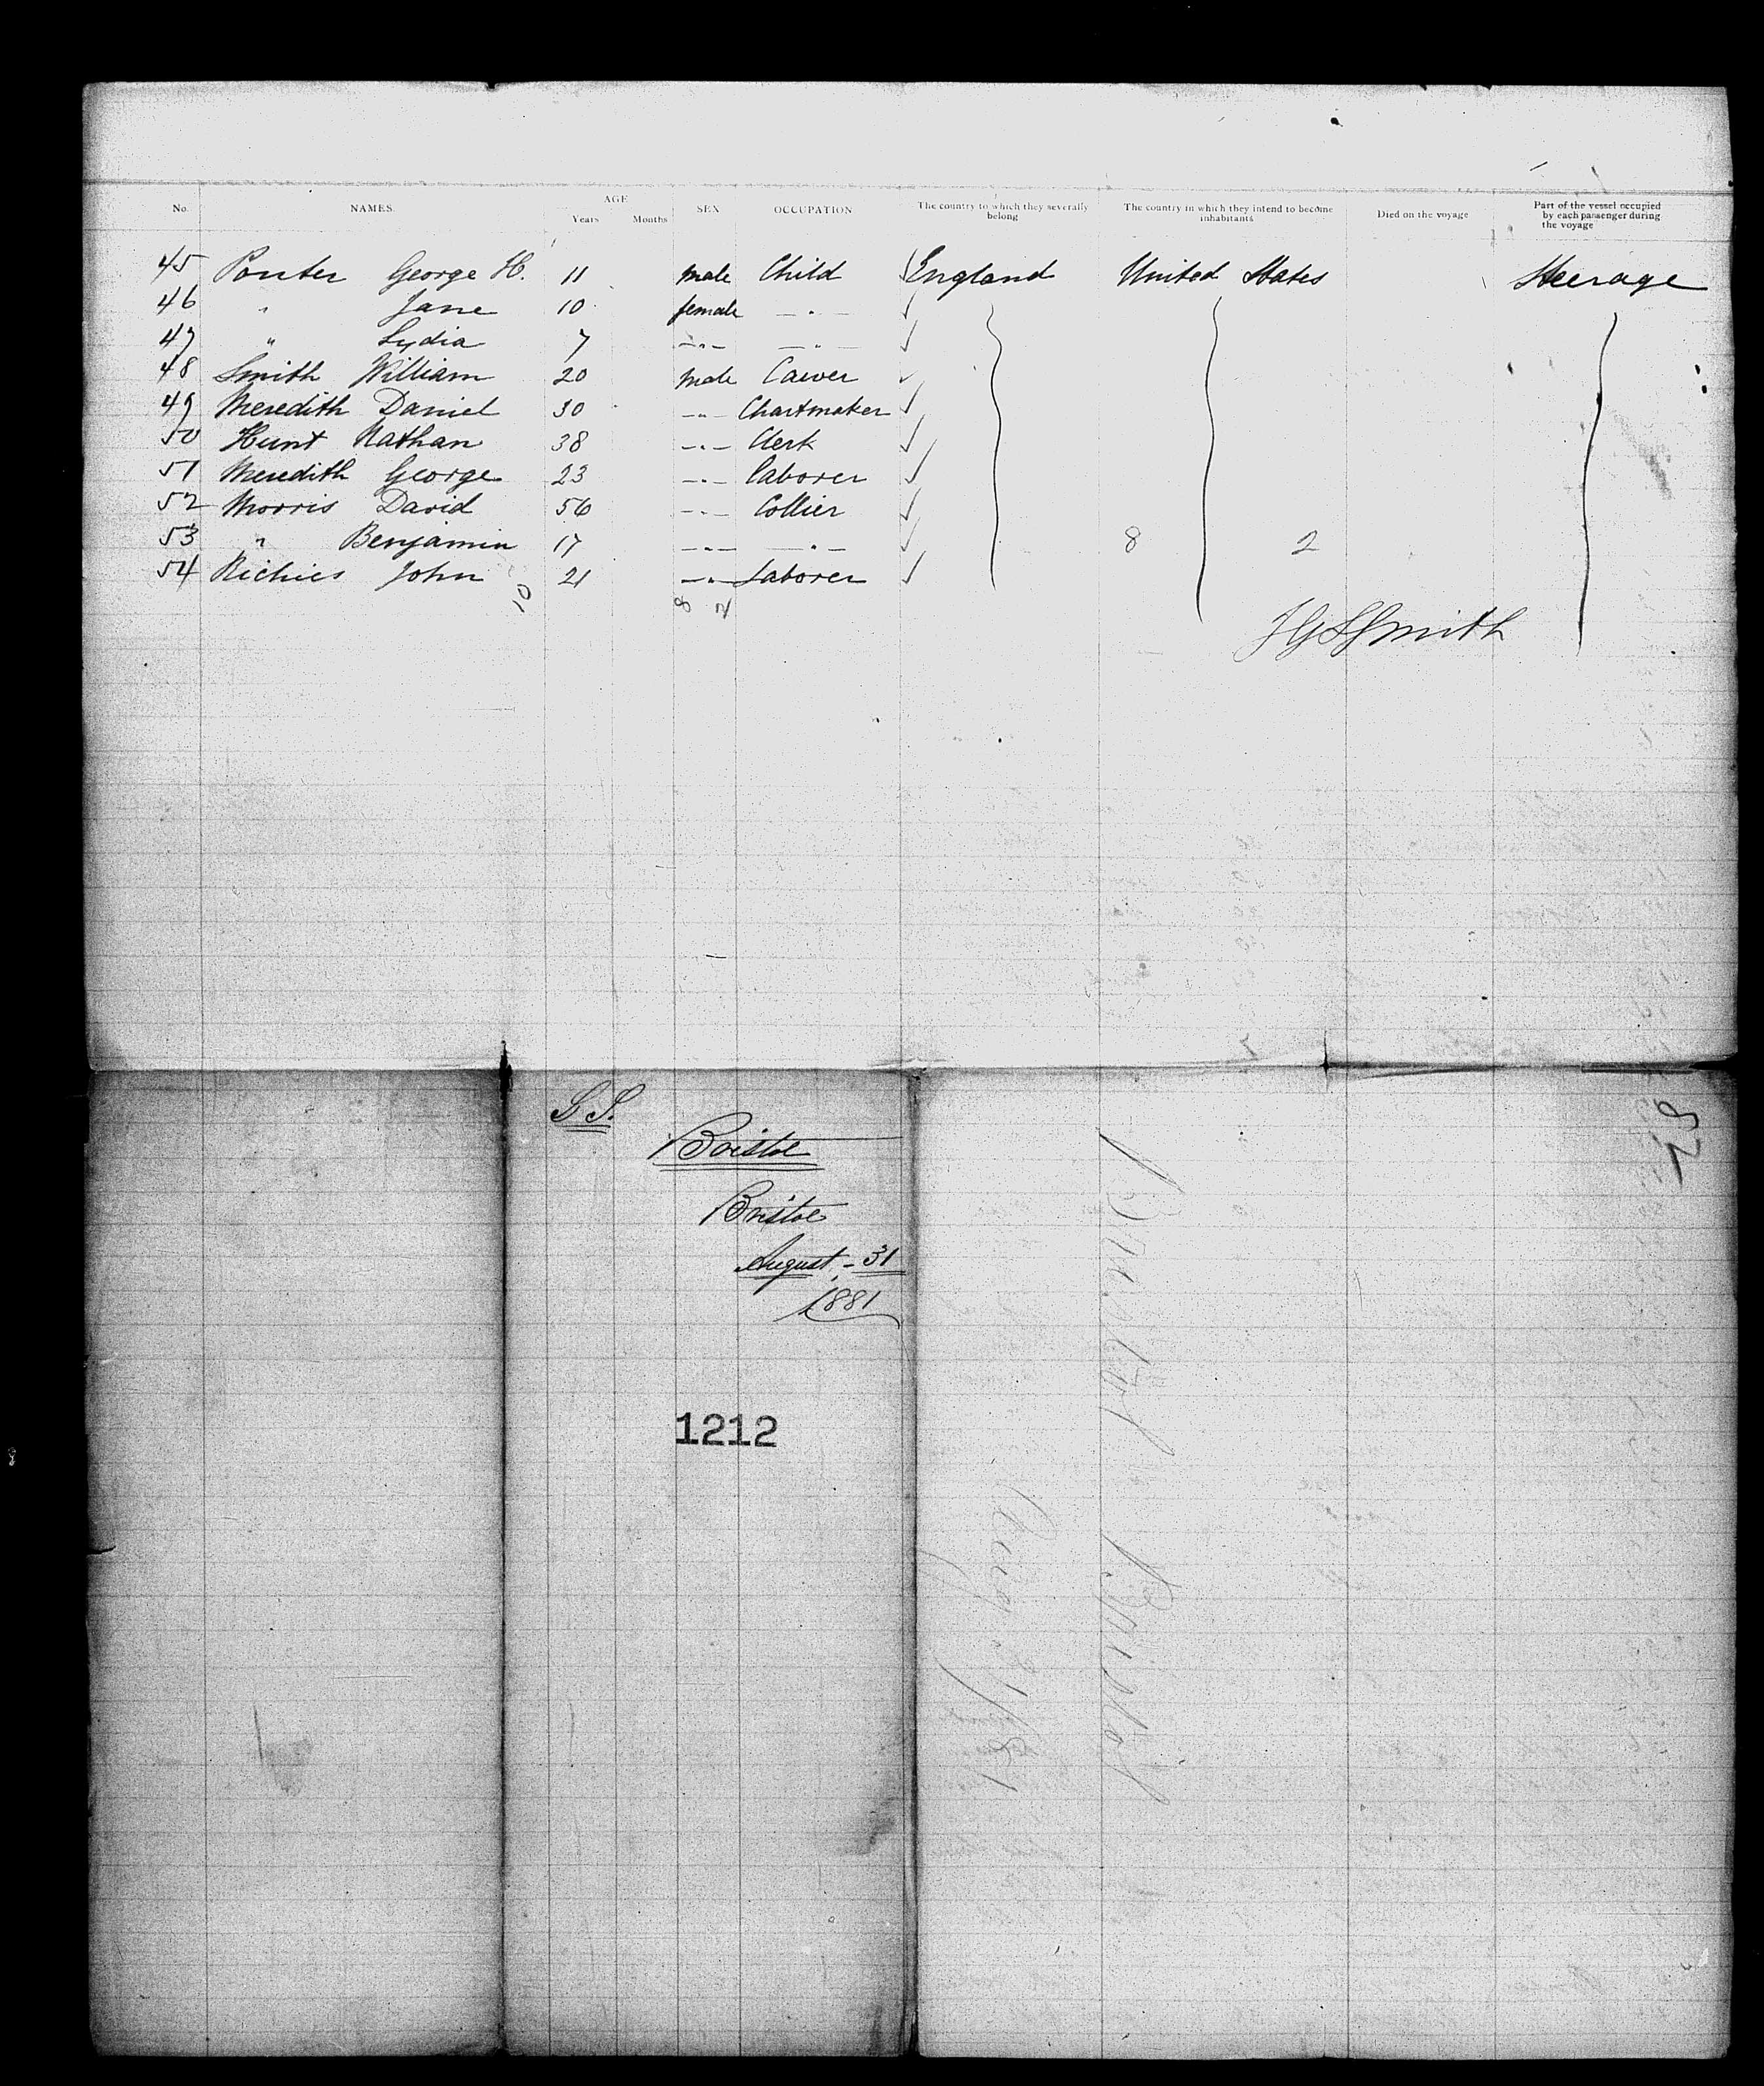 No. NAMES. AGE Years Months SEX OCCUPATION The country to which they severally belong The country in which they intend to become inhabitants Died on the voyage Part of the vessel occupied by each passenger during the voyage
45 Ponter George H. 11 male Child England United States Steerage
46 " Jane 10 female — " —
47 " Lydia 7 — " — — " —
48 Smith William 20 male Carver
49 Meredith Daniel 30 — " — Chartmaker
50 Hunt Nathan 38 — " — Clerk
51 Meredith George 23 — " — Laborer
52 Morris David 56 — " — Collier
53 " Benjamin 17 — " — — " — 8 2
54 Richies John 21 — " — Laborer
10 8 2
JGSSmith
S.S.
Bristol
Bristol
August - 31
1881
1212
Bristol Bristol
Aug. 31/81